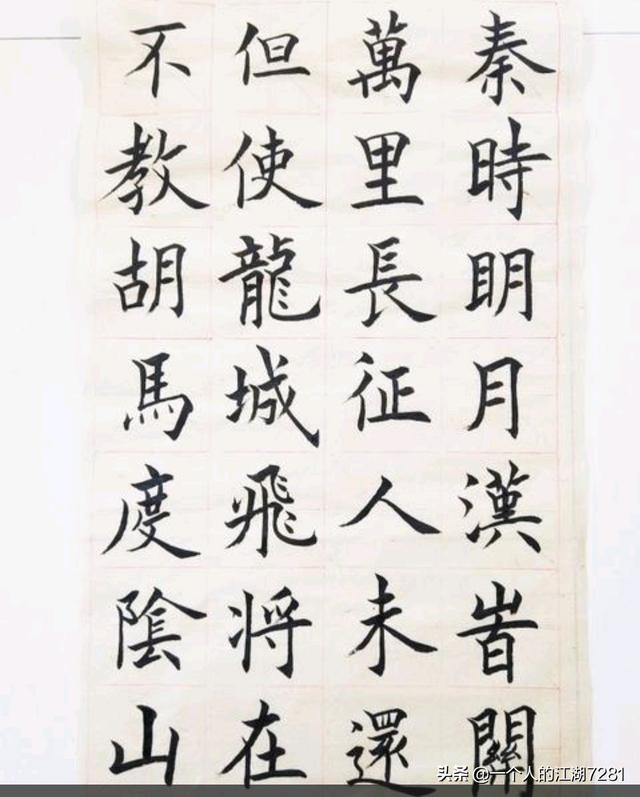 秦時明月漢旹關
萬里長征人未還
但使龍城飛将在
不教胡馬度陰山
头条 @一个人的江湖7281